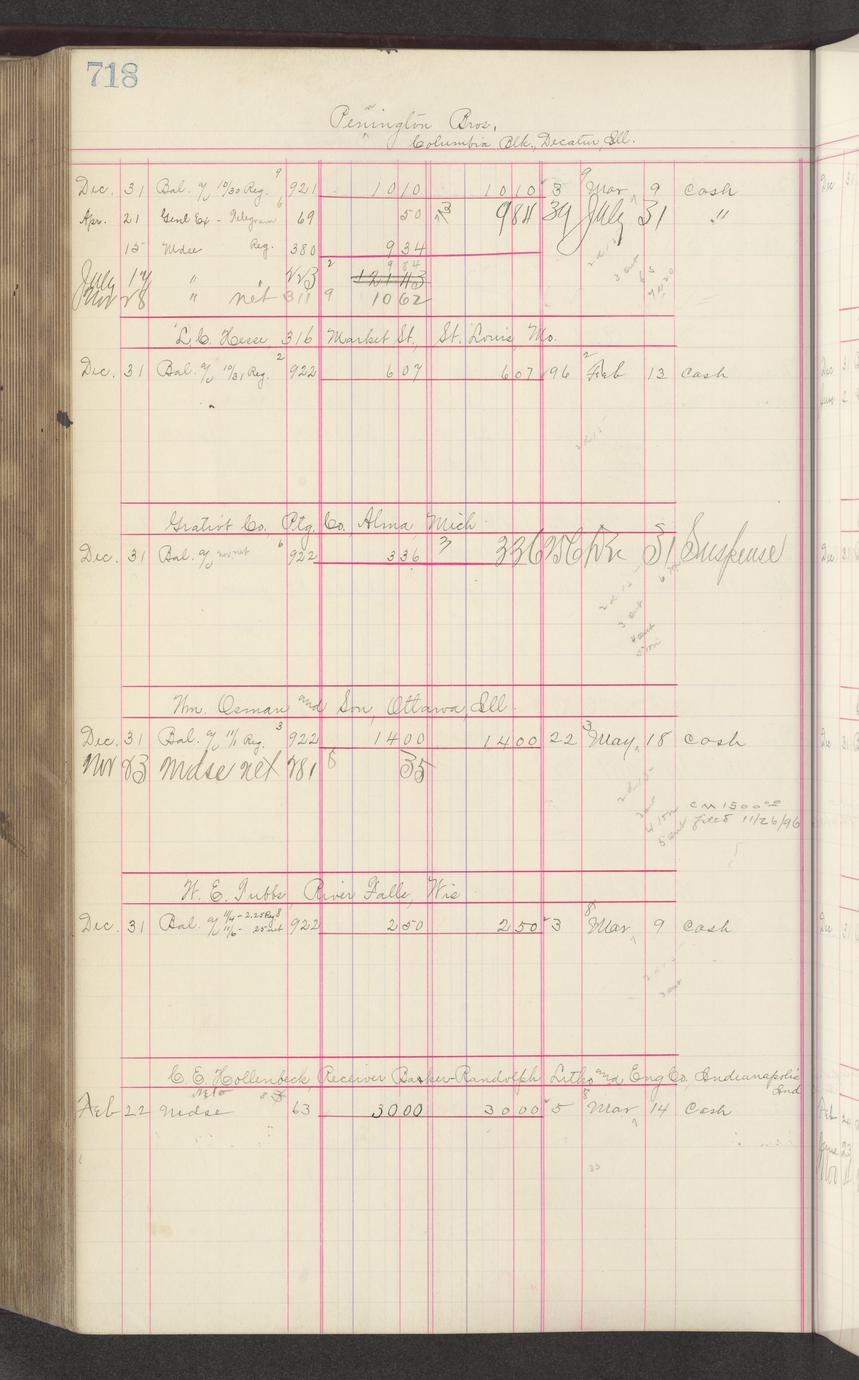 718
Penington Bros.
Columbia Blk., Decatur, Ill.
Dec. 31 Bal. 10/30 Reg. 9 921 1010 1010 3 9 Mar 9 Cash
Apr. 21 Genl Ex - Telegram 6 69 50 3 984 39 July 31 "
15 Mdse Reg. 380 934
984
July 17 " 223 2 12143
Nov 28 " net 311 9 1062
L. C. Hesse, 316 Market St., St. Louis Mo.
Dec. 31 Bal. 10/31 Reg. 2 922 607 607 96 2 Feb 13 Cash
Gratiot Co. Ptg. Co., Alma, Mich
Dec. 31 Bal. net 6 922 336 3 336 256 Dec 31 Suspense
Wm. Osman and Son, Ottawa, Ill.
Dec. 31 Bal. 11/1 Reg. 3 922 1400 1400 22 3 May 18 Cash
Nov 23 Mdse net 281 8 35
11/26/96
W. E. Tubbs River Falls, Wis
Dec. 31 Bal. 11/4 - 2.25 Reg 8 922 250 250 3 8 Mar 9 Cash
11/6 - 25 net
C. E. Hollenbeck, Receiver Barker-Randolph Litho and Eng Co., Indianapolis
Ind
Feb 22 Mdse 63 3000 3000 5 8 Mar 14 Cash